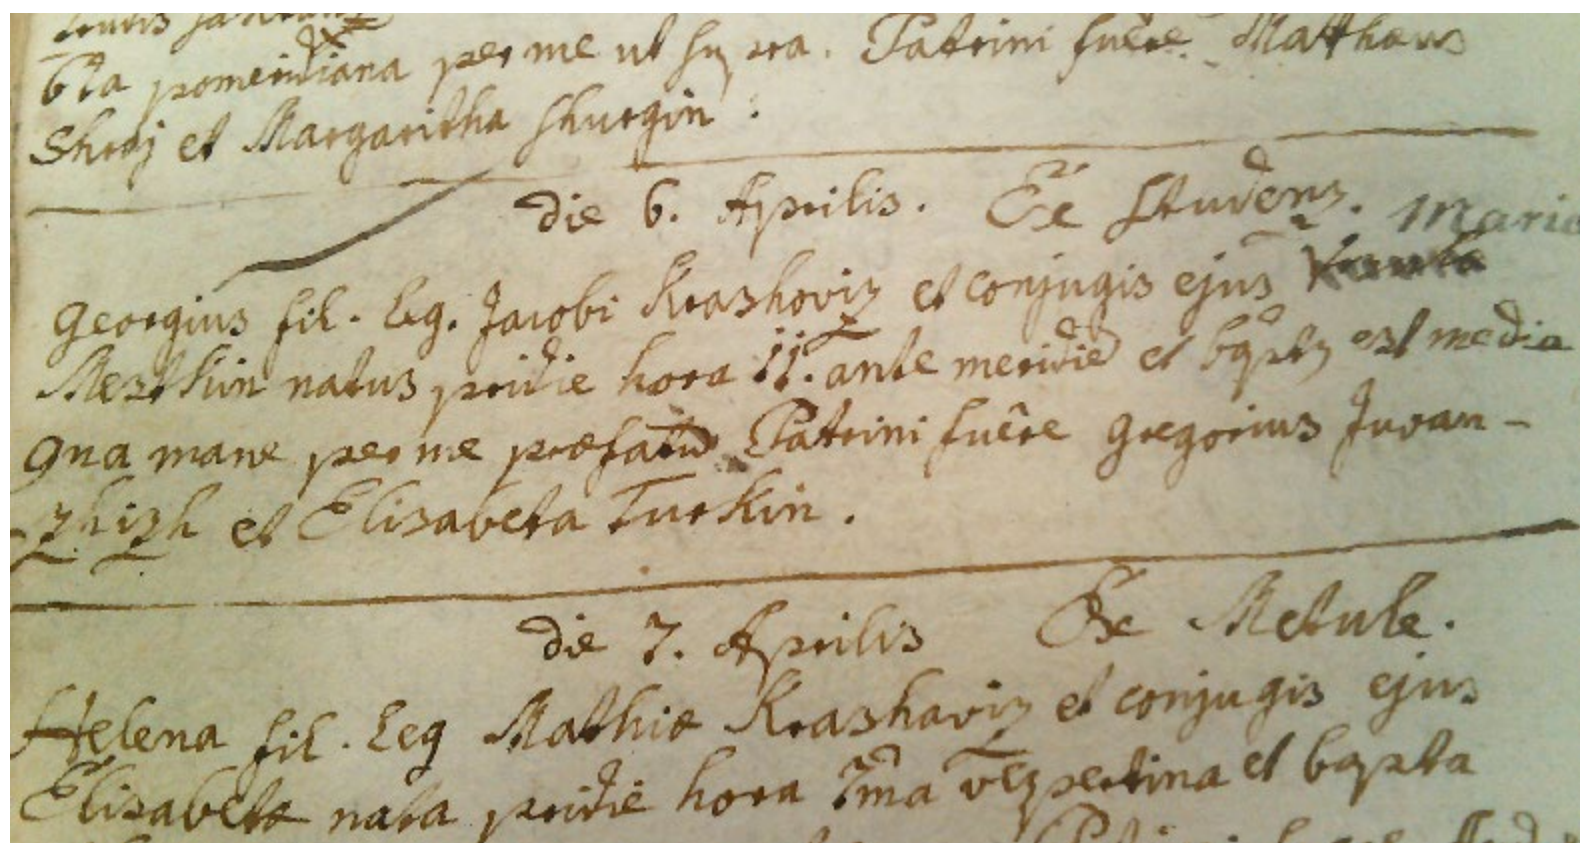 6ta pomeridiana per me ut supra. Patrini fuêre Matthæus
Shraj et Margaritha Shurgin.
die 6. Aprilis. Ex Studenz. Maria
Georgius fil. leg. Jacobi Krashoviz et conjugis ejus
Mestkin natus pridie hora 11. ante meridiē et bapts est media
9na mane per me præfatū Patrini fuêre Gregorius Juvan-
zhizh et Elisabeta Turkin.
die 7. Aprilis Ex Metule.
Helena fil. leg Mathiæ Krashaviz et conjugis ejus
Elisabetæ nata pridie hora 7ma vespertina et bapta